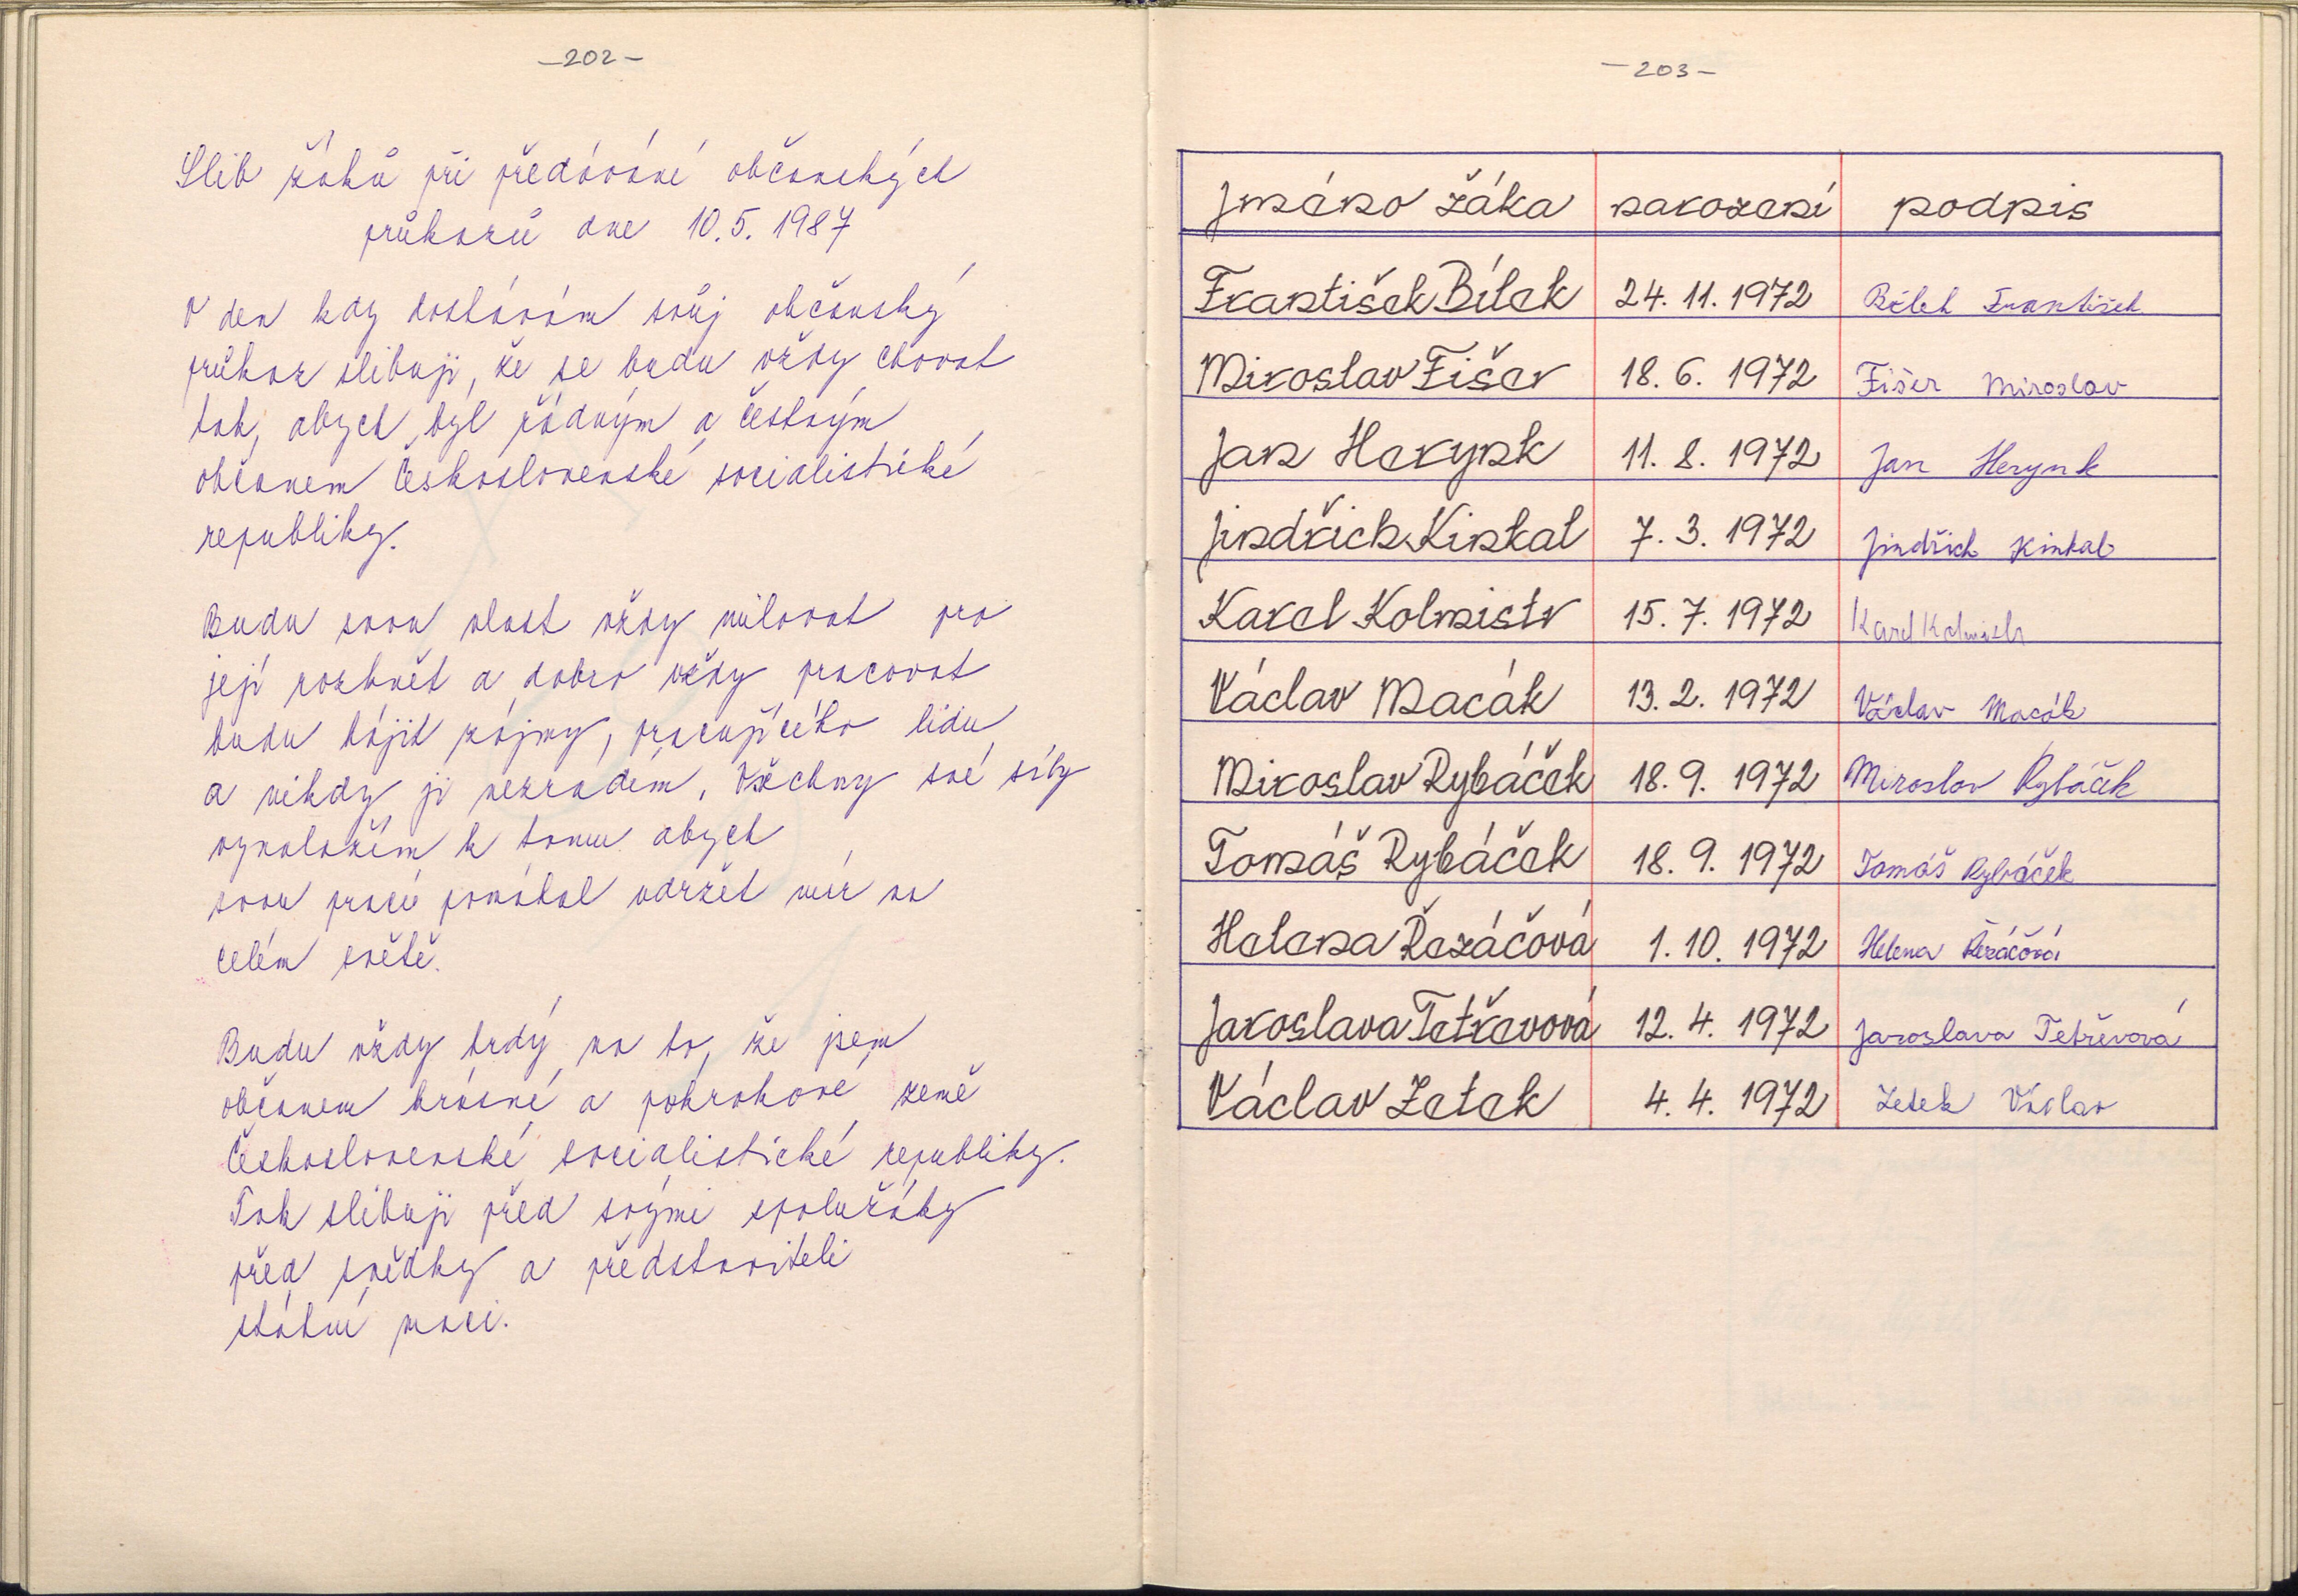 -202-
Slib žáků při předávání občanských
průkazů dne 10.5.1987
V den kdy dostávám svůj občanský
průkaz slibuji, že se budu vždy chovat
tak, abych byl řádným a čestným
občanem Československé socialistické
republiky.
Budu svou vlast vždy milovat pro
její rozkvět a dobro vždy pracovat
budu hájit zájmy, pracujícího lidu
a nikdy ji nezradím. Všechny své síly
vynaložím k tomu abych
svou prací pomáhal udržet mír na
celém světě.
Budu vždy hrdý na to, že jsem
občanem krásné a pokrokové země
Československé socialistické republiky.
Tak slibuji před svými spolužáky
před svědky a představiteli
státní moci.
-203-
Jméno žáka narození podpis
František Bílek 24. 11. 1972 Bílek František
Miroslav Fišer 18. 6. 1972 Fišer Miroslav
Jan Herynk 11. 8. 1972 Jan Herynk
Jindřich Kinkal 7. 3. 1972 Jindřich Kinkal
Karel Kolmistr 15. 7. 1972 Karel Kolmistr
Václav Macák 13. 2. 1972 Václav Macák
Miroslav Rybáček 18. 9. 1972 Miroslav Rybáček
Tomáš Rybáček 18. 9. 1972 Tomáš Rybáček
Helena Řezáčová 1. 10. 1972 Helena Řezáčová
Jaroslava Tetřevová 12. 4. 1972 Jaroslava Tetřevová
Václav Zetek 4. 4. 1972 Zetek Václav